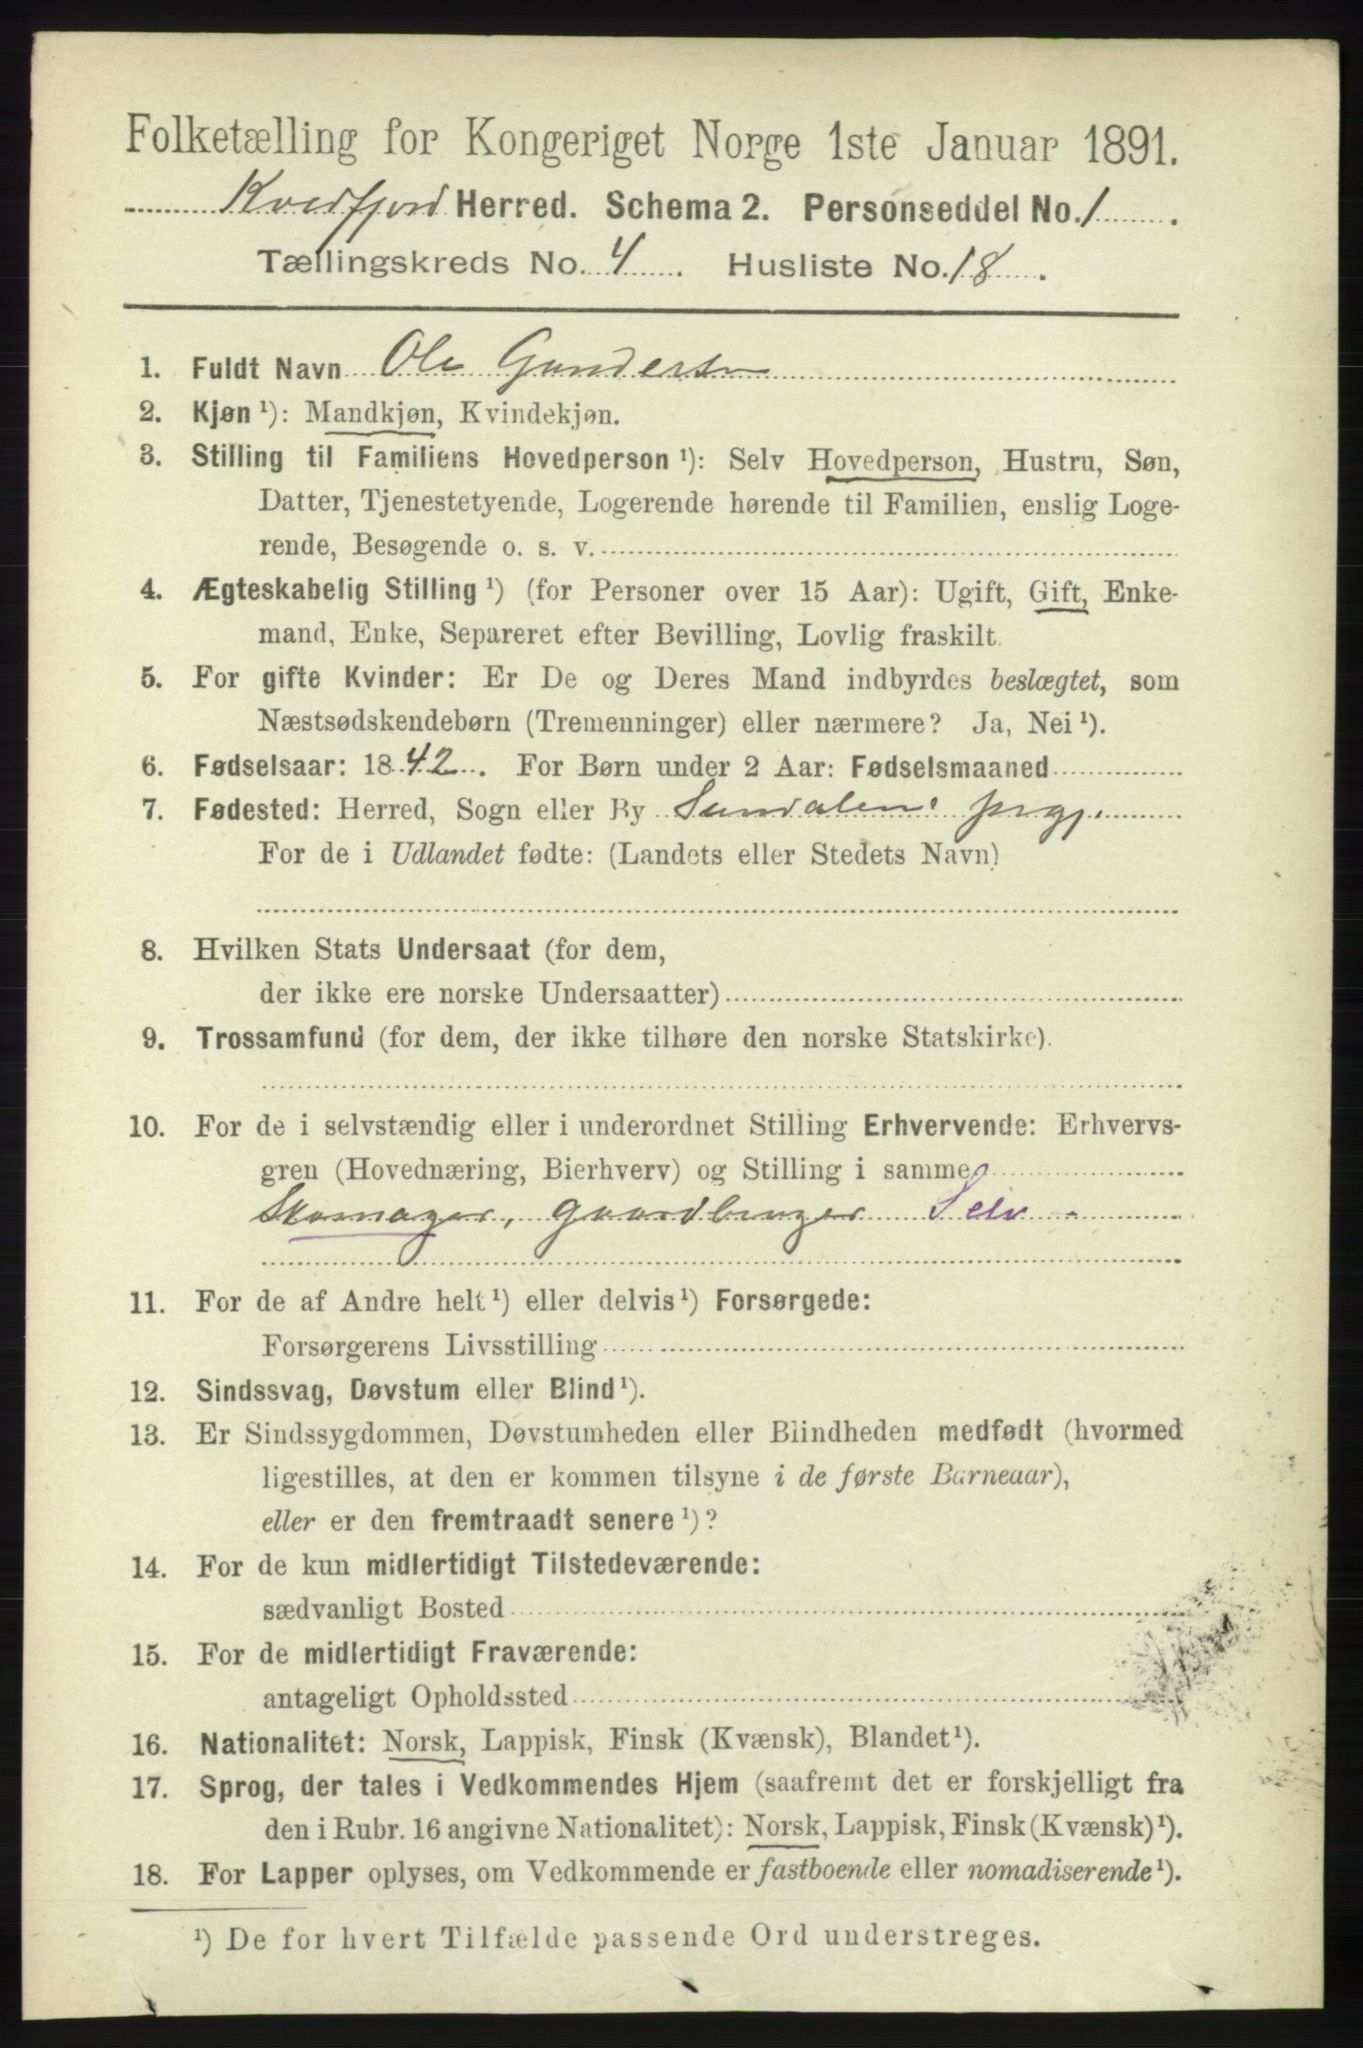 Folketælling for Kongeriget Norge 1ste Januar 1891.
Kvedfjord Herred. Schema 2. Personseddel No. 1
Tællingskreds No. 4. Husliste No. 18.
1. Fuldt Navn Ole Gundersen
2. Kjøn ¹): Mandkjøn, Kvindekjøn.
3. Stilling til Familiens Hovedperson ¹): Selv Hovedperson, Hustru, Søn,
Datter, Tjenestetyende, Logerende hørende til Familien, enslig Loge-
rende, Besøgende o. s. v.
4. Ægteskabelig Stilling ¹) (for Personer over 15 Aar): Ugift, Gift, Enke-
mand, Enke, Separeret efter Bevilling, Lovlig fraskilt.
5. For gifte Kvinder: Er De og Deres Mand indbyrdes beslægtet, som
Næstsødskendebørn (Tremenninger) eller nærmere? Ja, Nei ¹).
6. Fødselsaar: 1842. For Børn under 2 Aar: Fødselsmaaned
7. Fødested: Herred, Sogn eller By Sundalens prgj.
For de i Udlandet fødte: (Landets eller Stedets Navn)
8. Hvilken Stats Undersaat (for dem,
der ikke ere norske Undersaatter)
9. Trossamfund (for dem, der ikke tilhøre den norske Statskirke).
10. For de i selvstændig eller i underordnet Stilling Erhvervende: Erhvervs-
gren (Hovednæring, Bierhverv) og Stilling i samme
Skomager, gaardbruger Selv -
11. For de af Andre helt ¹) eller delvis ¹) Forsørgede:
Forsørgerens Livsstilling
12. Sindssvag, Døvstum eller Blind ¹).
13. Er Sindssygdommen, Døvstumheden eller Blindheden medfødt (hvormed
ligestilles, at den er kommen tilsyne i de første Barneaar),
eller er den fremtraadt senere ¹)?
14. For de kun midlertidigt Tilstedeværende:
sædvanligt Bosted
15. For de midlertidigt Fraværende:
antageligt Opholdssted
16. Nationalitet: Norsk, Lappisk, Finsk (Kvænsk), Blandet ¹).
17. Sprog, der tales i Vedkommendes Hjem (saafremt det er forskjelligt fra
den i Rubr. 16 angivne Nationalitet): Norsk, Lappisk, Finsk (Kvænsk) ¹).
18. For Lapper oplyses, om Vedkommende er fastboende eller nomadiserende ¹).
¹) De for hvert Tilfælde passende Ord understreges.